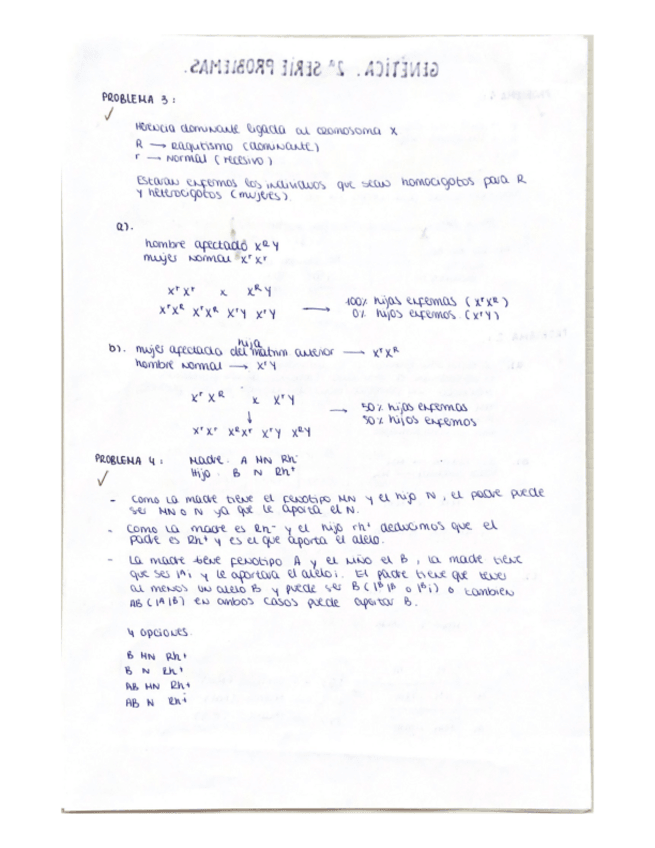 GENÉTICA. 2ª SERIE PROBLEMAS.
PROBLEMA 3:
Herencia dominante ligada al cromosoma X
R → Raquitismo (dominante)
r → Normal (recesivo)
Estarán enfermos los individuos que sean homocigotos para R
y heterocigotos (mujeres).
a).
hombre afectado XᴿY
mujer normal XʳXʳ
XʳXʳ x XᴿY
XʳXᴿ XʳXᴿ XʳY XʳY → 100% hijas enfermas (XʳXᴿ)
0% hijos enfermos (XʳY)
hija
b). mujer afectada del matrim anterior → XʳXᴿ
hombre normal → XʳY
XʳXᴿ x XʳY
↓
XʳXʳ XᴿXʳ XʳY XᴿY
→ 50% hijas enfermas
50% hijos enfermos
PROBLEMA 4: Madre. A MN Rh⁻
Hijo. B N Rh⁺
- Como la madre tiene el fenotipo MN y el hijo N, el padre puede
ser MN o N ya que le aporta el N.
- Como la madre es Rh⁻ y el hijo rh⁺ deducimos que el
padre es Rh⁺ y es el que aporta el alelo.
- La madre tiene fenotipo A y el niño el B, la madre tiene
que ser Iᴬi y le aportará el alelo i. El padre tiene que tener
al menos un alelo B y puede ser B (IᴮIᴮ o Iᴮi) o también
AB (IᴬIᴮ) en ambos casos puede aportar B.
4 opciones.
B MN Rh⁺
B N Rh⁺
AB MN Rh⁺
AB N Rh⁺